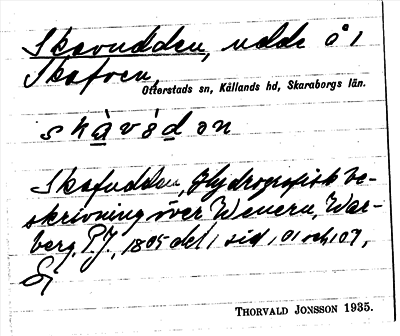 Skovudden, udde å 1
Skofven,
Otterstads sn, Kållands hd, Skaraborgs län.
skåvudən
Skofudden, Hydrografisk be-
skrivning över Wenern, War-
berg, P.J., 1805 del 1 sid, 101 och 107,